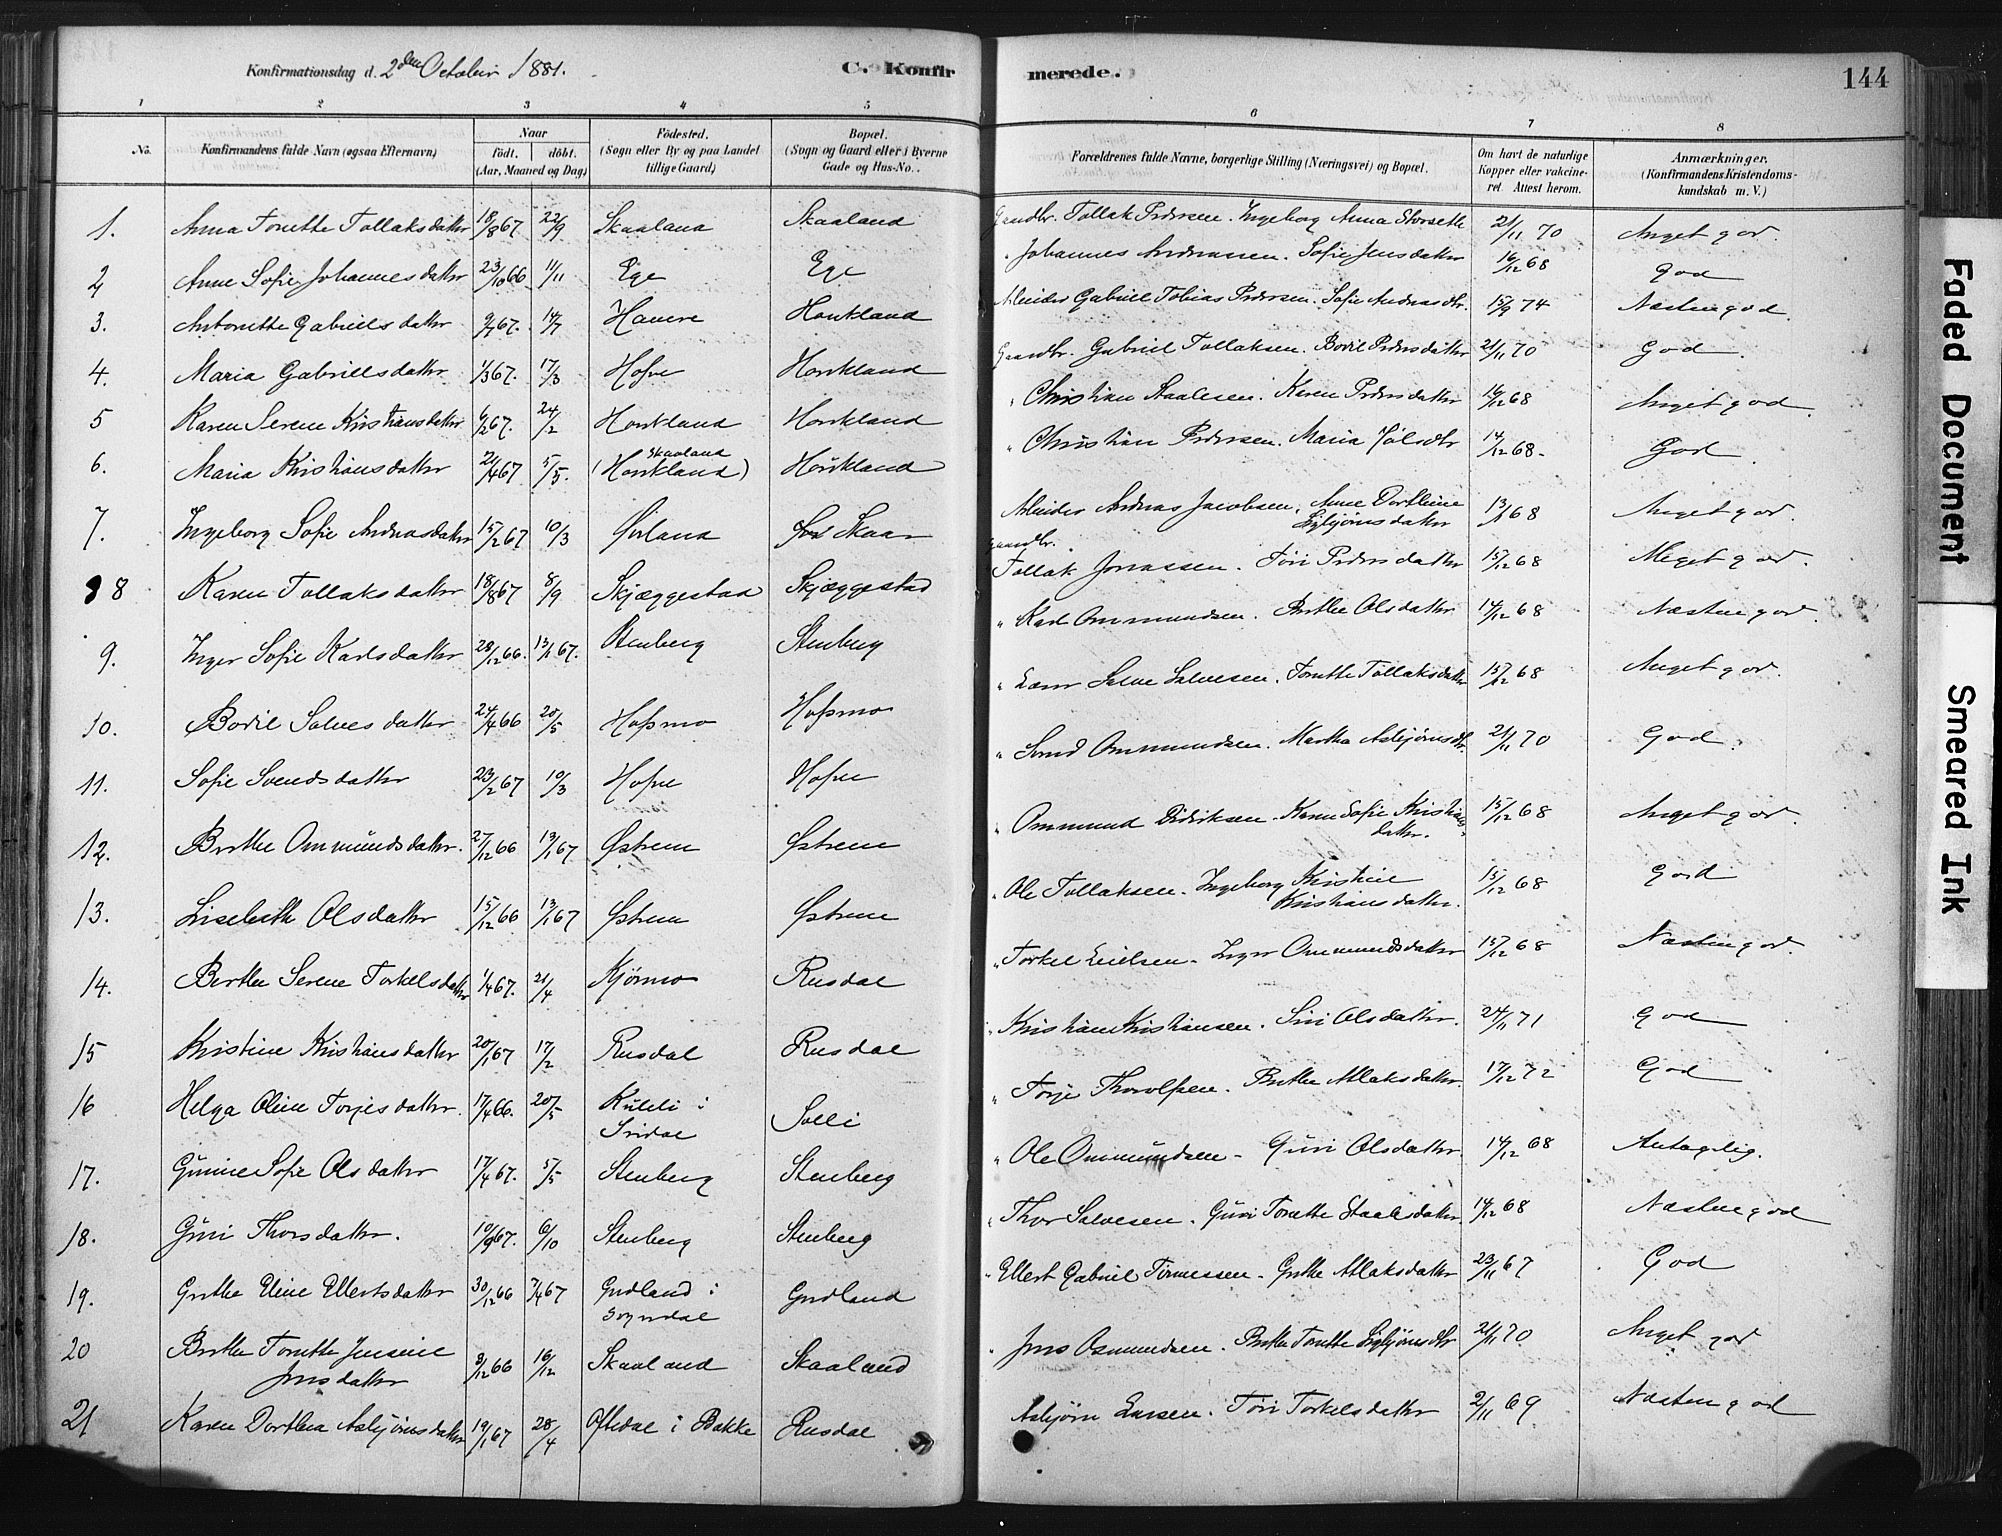 Konfirmationsdag d. 2den October 1881. C. Konfirmerede. 144
1 2 3 4 5 6 7 8
No. Konfirmandens fulde Navn (ogsaa Efternavn) Naar födt. döbt. (Aar, Maaned og Dag) Födested. (Sogn eller By og paa Landet tillige Gaard) Bopæl. (Sogn og Gaard eller i Byerne Gade og Hus-No. Forældrenes fulde Navne, borgerlige Stilling (Næringsvei) og Bopæl. Om havt de naturlige Kopper eller vakcineret. Attest herom. Anmærkninger. (Konfirmandens Kristendomskundskab m. V.)
1. Anna Tonette Tollaksdatter 18/8 67 22/9 Skaaland Skaaland Gaardbr. Tollak Pedersen. Ingeborg Anna 21/11 70 Meget god.
2 Anne Sofie Johannesdatter 23/10 66 11/11 Ege Ege " Johannes Andreassen. Sofie Jensdatter 16/12 68 God
3. Antonette Gabrielsdatter 9/7 67. 14/7 Hovere Houkland Arbeider Gabriel Tobias Pedersen. Sofie Andreasdtr. 15/9 74 Næsten god.
4. Maria Gabrielsdatter 1/3 67. 17/3 Hofve Houkland Gaardbr. Gabriel Tollaksen. Bodil Pedersdatter 21/11 70 God.
5 Karen Serene Kristiansdatter 6/2 67. 24/2 Houkland Houkland " Christian Staalesen. Karen Pedersdatter 16/12 68 Meget god.
6. Maria Kristiansdatter 21/4 67 5/5. Skaaland (Houkland) Houkland " Christian Pedersen. Maria 14/12 68. God.
7. Ingeborg Sofie Andreasdatter 15/2 67 10/3 Örland Skaar Arbeider Andreas Jacobsen, Anne Dorthine Sigbjörnsdatter 13/1 68 Meget god.
8 Karen Tollaksdatter 18/8 67 8/9 Skjæggestad Skjæggestad Gaardbr. Tollak Jonassen. Töri Pedersdatter 15/12 68 Meget god.
9. Inger Sofie Karlsdatter 28/12 66. 13/1 67. Stenberg Stenberg " Karl Ommundsen. Berthe Olsdatter 14/12 68 Næsten god.
10. Bodil Salvesdatter 24/4 66 20/5 Hofsmo Hofsmo " Salve Salvesen. Tonette Tollaksdatter 15/12 68 Meget god.
11. Sofie Svendsdatter 23/2 67 10/3 Hofve Hofve " Svend Ommundsen. Martha Asbjörnsdtr. 21/11 70 God.
12. Berthe Ommundsdatter. 27/12 66 13/1 67 Östrem Östrem " Ommund Didriksen. Karen Sofie Kristiansdatter. 15/12 68 Meget god.
13. Lisebeth Olsdatter 15/12 66 13/1 67 Östrem Östrem " Ole Tollaksen. Ingeborg Kristine Kristiansdatter. 15/12 68 God
14. Berthe Serene Torkelsdatter 1/4 67. 21/4 Kjörmo Rusdal " Torkel Eielsen. Inger Ommundsdatter 15/12 68 Næsten god.
15 Kristine Kristiansdatter 20/1 67 17/2 Rusdal Rusdal " Kristian Kristiansen. Siri Olsdatter. 24/11 71 God
16 Helga Oline Torjesdatter. 17/4 66. 20/5 i Siridal Solli " Torje Thorolfsen. Berthe Atlaksdatter. 17/12 72 God
17. Gunine Sofie Olsdatter 17/4 67. 5/5 Stenberg Stenberg " Ole Ommundsen - Guri Olsdatter. 14/12 68 Antagelig.
18. Guri Thorsdatter. 10/9 67. 6/10 Stenberg Stenberg " Thor Salvesen. Guri Tonette Staalsdatter. 14/12 68 Næsten god
19. Grethe Eline Ellertsdatter 30/12 66 7/4 67 Gydland i Sogndal Gydland " Ellert Gabriel Tönnessen. Grethe Atlaksdatter 23/11 67 God
20 Berthe Tonette Jensine Jensdatter 3/12 66 16/12 Skaaland Skaaland " Jens Osmundsen. Berthe Tonette Sigbjörnsdtr 21/11 70 Meget god
21 Karen Dorthea Asbjörnsdatter 19/1 67 28/4 Oftedal i Bakke Rusdal Asbjörn Larsen. Töri Torkelsdatter 2/11 69 Næsten god
Faded Document
Smeared Ink